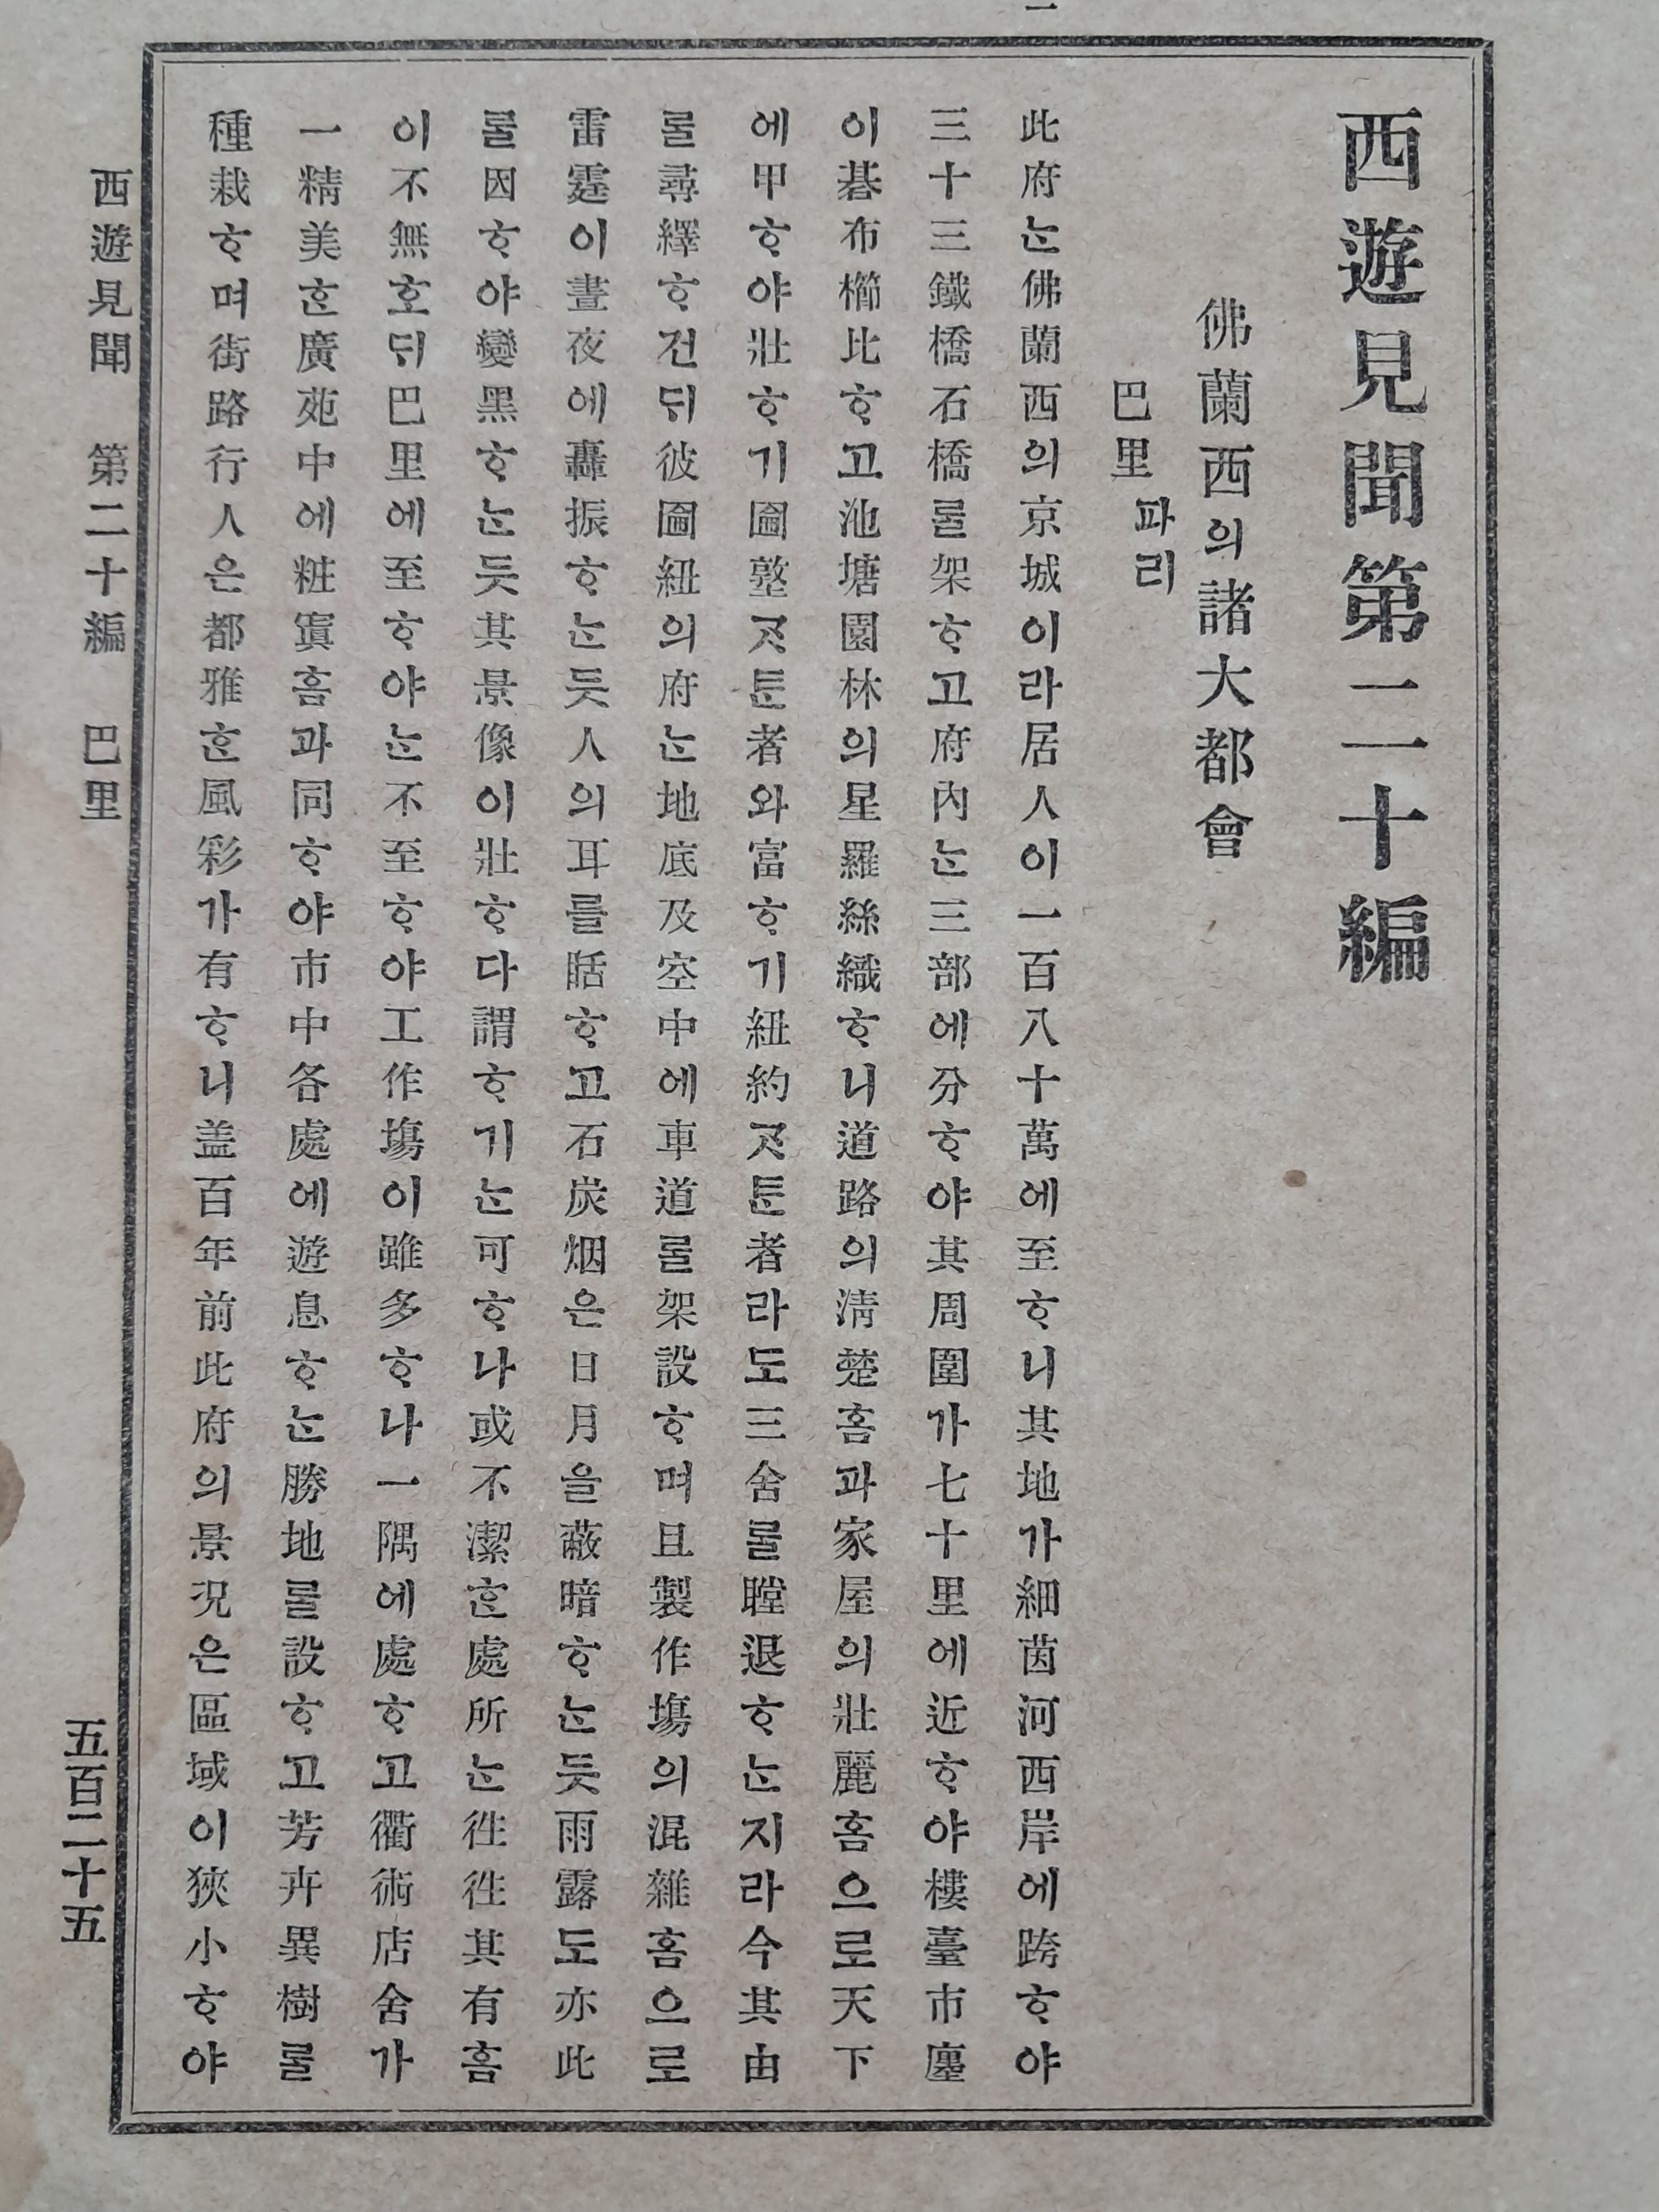 西遊見聞第二十編
佛蘭西의諸大都會
巴里 파리
此府ᄂᆞᆫ佛蘭西의京城이라居人이一百八十萬에至ᄒᆞ니其地가細茵河西岸에跨ᄒᆞ야
三十三鐵橋石橋ᄅᆞᆯ架ᄒᆞ고府內ᄂᆞᆫ三部에分ᄒᆞ야其周圍가七十里에近ᄒᆞ야樓臺市廛
이碁布櫛比ᄒᆞ고池塘園林의星羅絲織ᄒᆞ니道路의淸楚홈과家屋의壯麗홈으로天下
에甲ᄒᆞ야壯ᄒᆞ기圇墪ᄀᆞᆺᄐᆞᆫ者와富ᄒᆞ기紐約ᄀᆞᆺᄐᆞᆫ者라도三舍ᄅᆞᆯ瞠退ᄒᆞᄂᆞᆫ지라今其由
ᄅᆞᆯ尋繹ᄒᆞ건ᄃᆡ彼圇紐의府ᄂᆞᆫ地底及空中에車道ᄅᆞᆯ架設ᄒᆞ며且製作塲의混雜홈으로
雷霆이晝夜에轟振ᄒᆞᄂᆞᆫ듯人의耳를聒ᄒᆞ고石炭烟은日月을蔽暗ᄒᆞᄂᆞᆫ듯雨露도亦此
ᄅᆞᆯ因ᄒᆞ야變黑ᄒᆞᄂᆞᆫ듯其景像이壯ᄒᆞ다謂ᄒᆞ기ᄂᆞᆫ可ᄒᆞ나或不潔ᄒᆞᆫ處所ᄂᆞᆫ徃徃其有홈
이不無호ᄃᆡ巴里에至ᄒᆞ야ᄂᆞᆫ不至ᄒᆞ야工作塲이雖多ᄒᆞ나一隅에處ᄒᆞ고衢術店舍가
一精美ᄒᆞᆫ廣苑中에粧寘홈과同ᄒᆞ야市中各處에遊息ᄒᆞᄂᆞᆫ勝地ᄅᆞᆯ設ᄒᆞ고芳卉異樹ᄅᆞᆯ
種栽ᄒᆞ며街路行人은都雅ᄒᆞᆫ風彩가有ᄒᆞ니盖百年前此府의景况은區域이狹小ᄒᆞ야
西遊見聞 第二十編 巴里
五百二十五